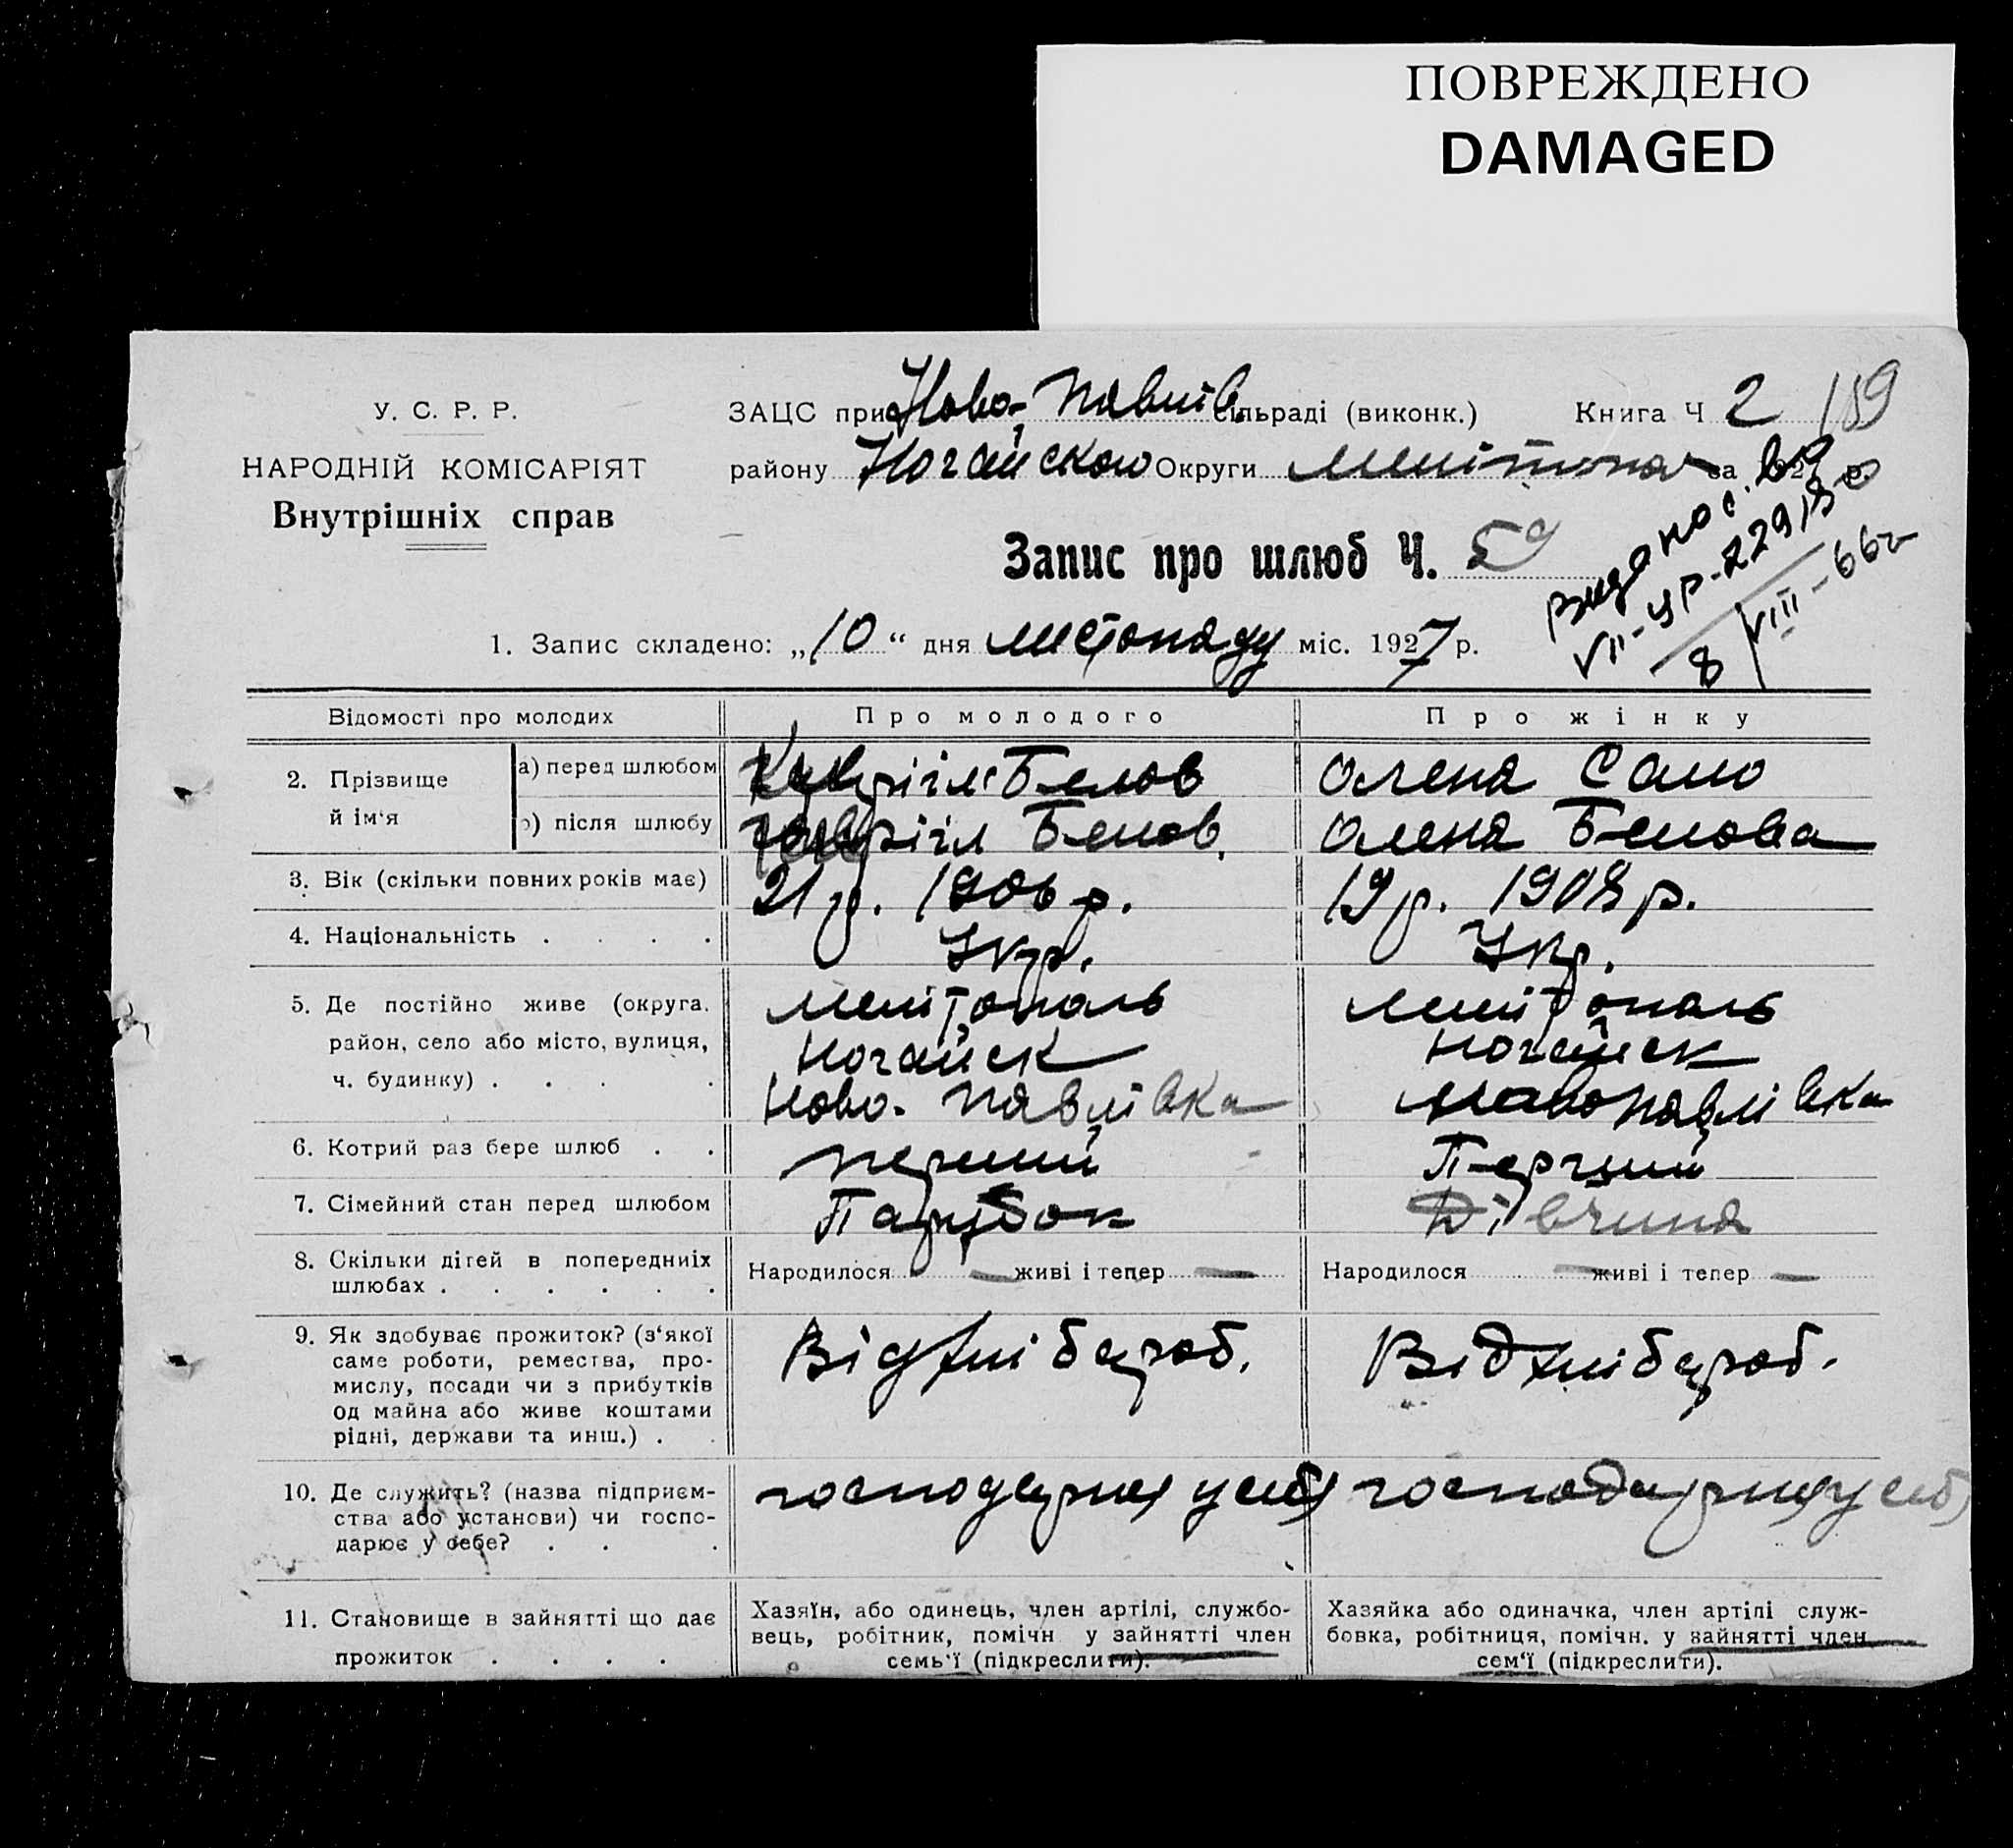 ПОВРЕЖДЕНО
DAMAGED
У. С. Р. Р.
НАРОДНІЙ КОМІСАРІЯТ
Внутрішніх справ
ЗАЦС при Ново-Павлів. сільраді (виконк.) Книга Ч 2 189
району Ногайского Округи Мелітопол за 192 р.
Запис про шлюб Ч. 59
видано с. во
VII-УР-
8/VIII-66г
1. Запис складено: „10“ дня листопаду міс. 1927 р.
Відомості про молодих Про молодого Про жінку
2. Прізвище й ім'я а) перед шлюбом Гавріїл Белов Олена Сало
б) після шлюбу Гавріїл Белов. Олена Белова
3. Вік (скільки повних років має) 21 р. 1906 р. 19 р. 1908 р.
4. Національність . . . . Укр. Укр.
5. Де постійно живе (округа, Мелітополь Мелітополь
район, село або місто, вулиця, Ногайск Ногайск
ч. будинку) . . . . Ново-Павлівка Новопавлівка
6. Котрий раз бере шлюб . . перший Перший
7. Сімейний стан перед шлюбом Парубок Дівчина
8. Скільки дітей в попередніх Народилося — живі і тепер — Народилося — живі і тепер —
шлюбах . . . . . .
9. Як здобуває прожиток? (з'якої Від хлібороб. Від хлібороб.
саме роботи, ремества, про-
мислу, посади чи з прибутків
од майна або живе коштами
рідні, держави та инш.) .
10. Де служить? (назва підприєм- господарює у себе господарює у себе
ства або установи) чи госпо-
дарює у себе? . . .
11. Становище в зайнятті що дає Хазяїн, або одинець, член артілі, службо- Хазяйка або одиначка, член артілі служ-
прожиток . . . . вець, робітник, помічн у зайнятті член бовка, робітниця, помічн. у зайнятті член
семь'ї (підкреслити). сем'ї (підкреслити).